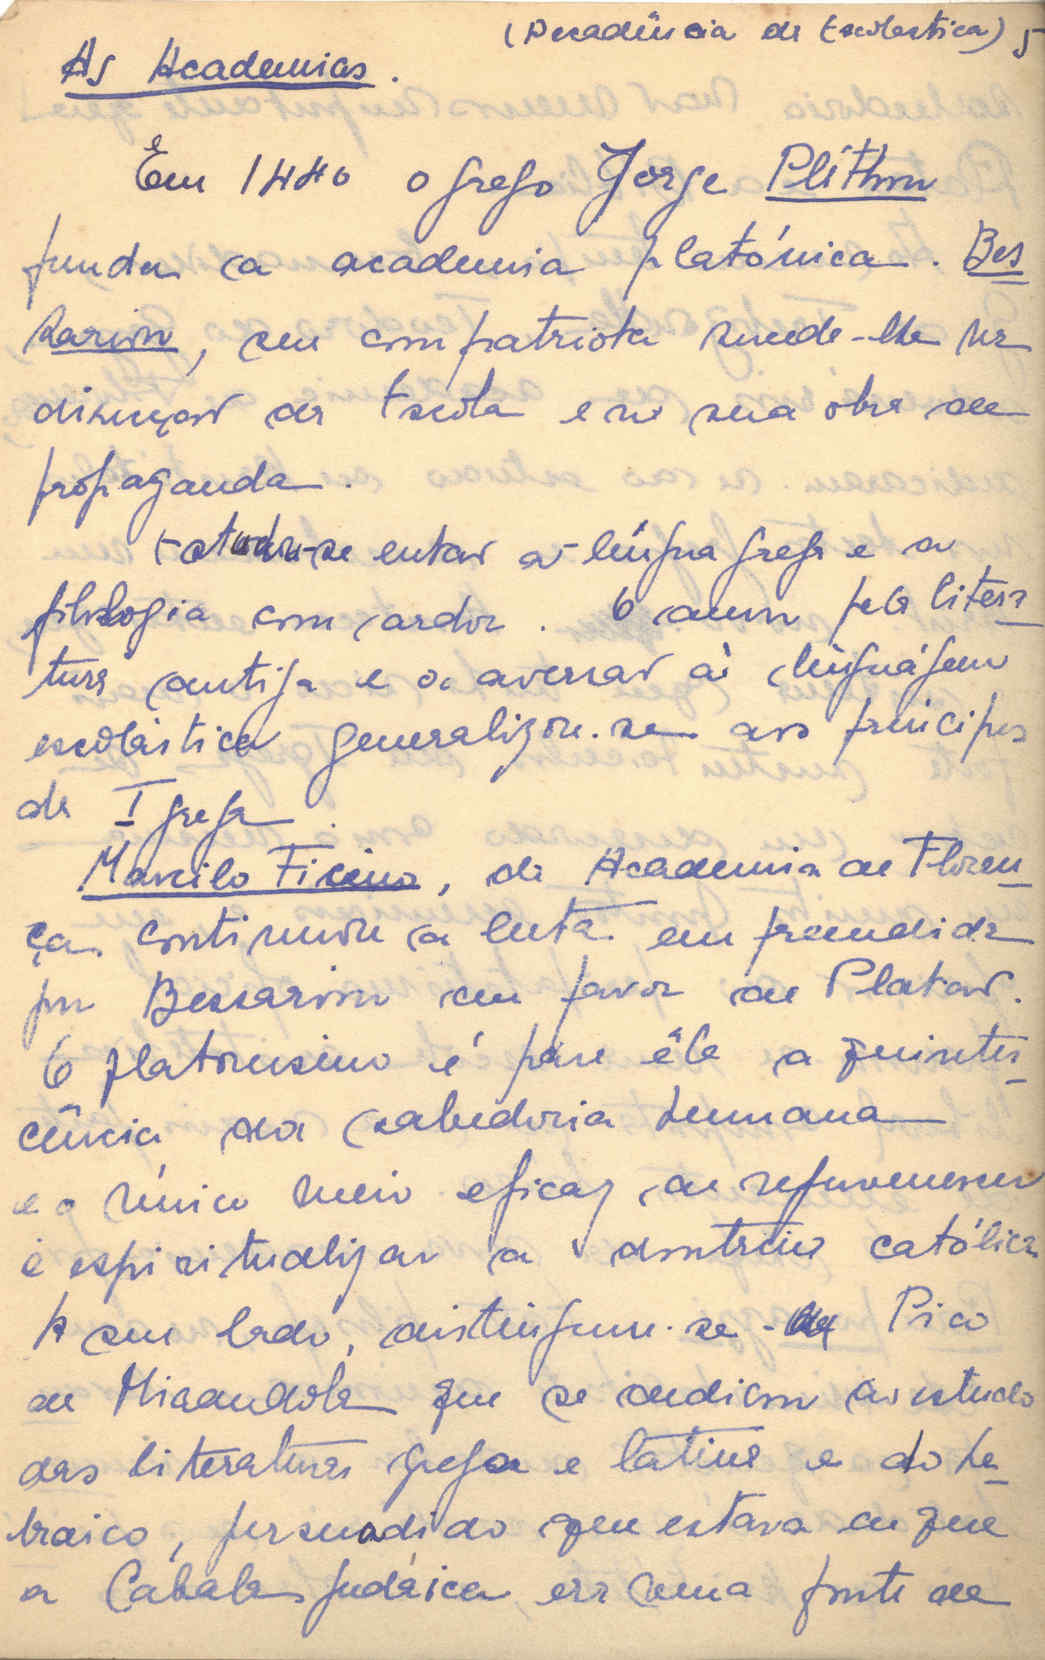 (Decadência da Escolástica) 5
As Academias.
Em 1440 o grego Jorge Plithon
funda a academia platónica. Bes
sarion, seu compatriota sucede-lhe na
direcção da Escola e na sua obra de
propaganda.
Estuda-se então a língua grega e a
filologia com ardor. O amor pela litera-
tura antiga e a aversão à linguágem
escolástica generalizou-se aos principes
da Igreja.
Marcilo Ficino, da Academia de Floren-
ça continuou a luta empreendida
por Bessarion em favor de Platão.
O platonismo é para êle a quintes-
cência da sabedoria humana
e o único meio eficaz de rejuvenescer
e espiritualizar a doutrina católica
A seu lado, distingue-se Pico
de Mirandola que se dedicou ao estudo
das literaturas grega e latina e do he-
braico, persuadido que estava de que
a Cabala judáica, era uma fonte de